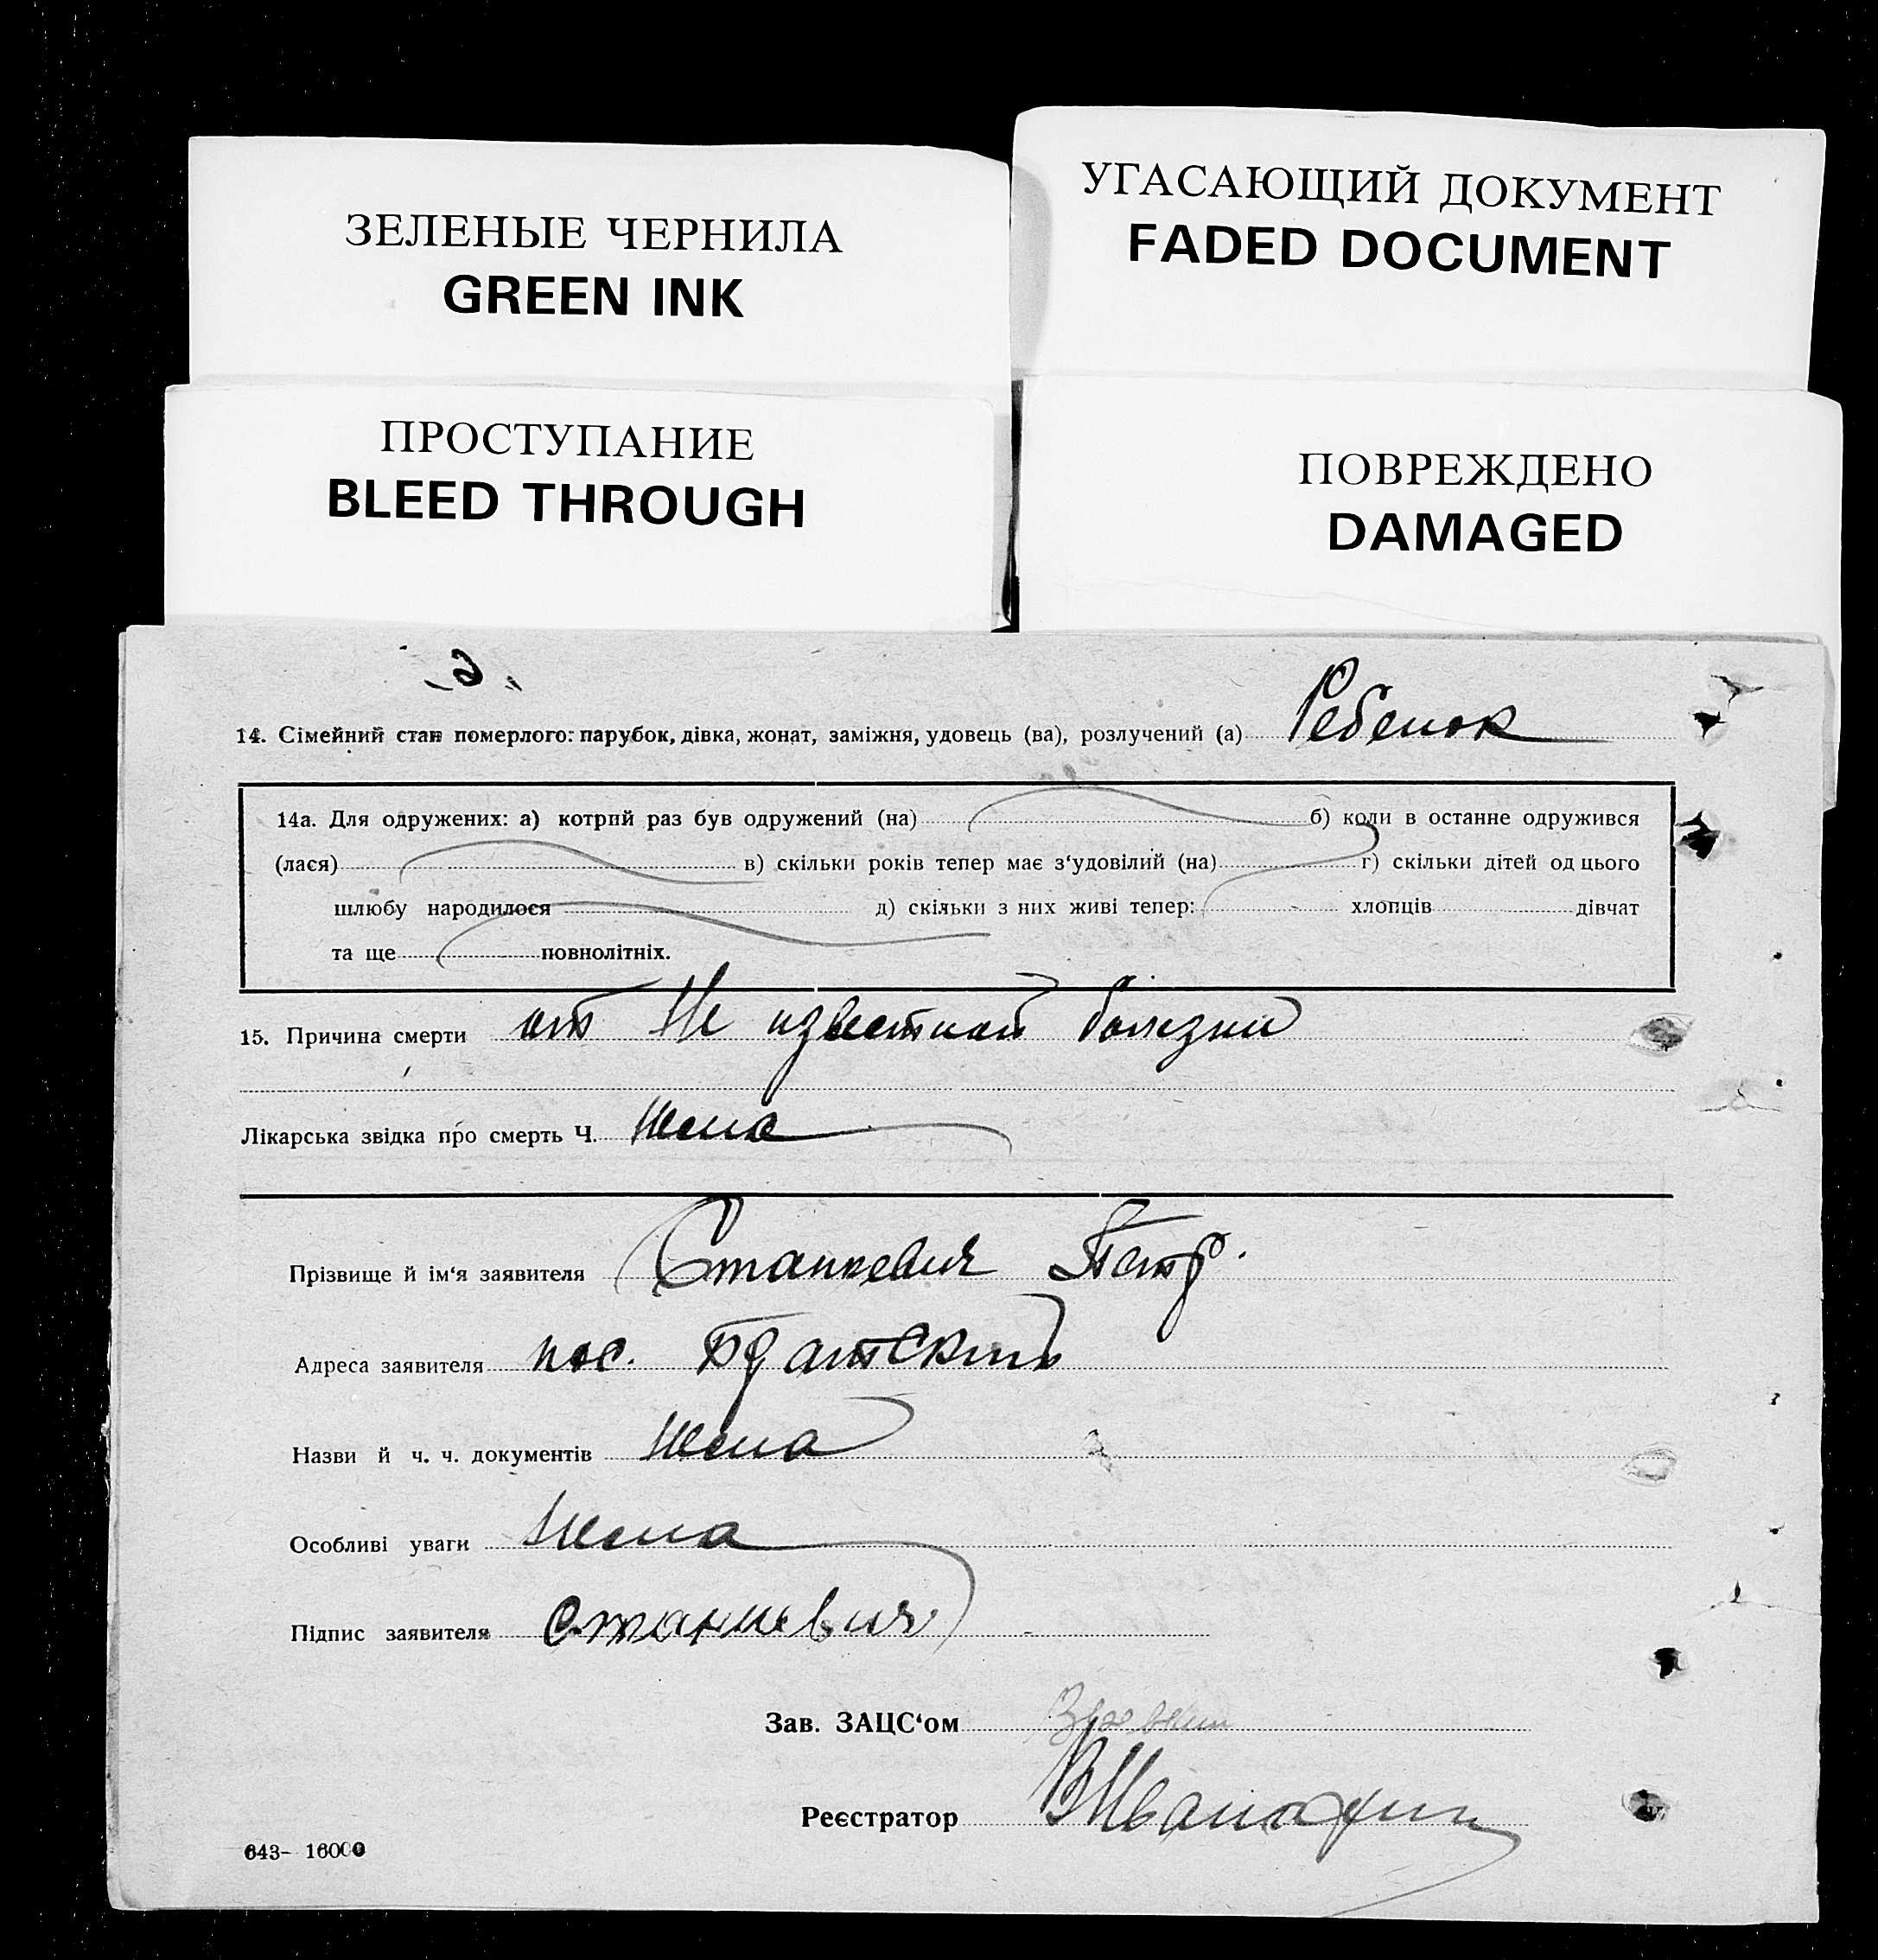 ЗЕЛЕНЫЕ ЧЕРНИЛА
GREEN INK
УГАСАЮЩИЙ ДОКУМЕНТ
FADED DOCUMENT
ПРОСТУПАНИЕ
BLEED THROUGH
ПОВРЕЖДЕНО
DAMAGED
14. Сімейний стан померлого: парубок, дівка, жонат, заміжня, удовець (ва), розлучений (а) Ребенок
14а. Для одружених: а) котрий раз був одружений (на) б) коли в останне одружився
(лася) в) скільки років тепер має з‘удовілий (на) г) скільки дітей од цього
шлюбу народилося д) скільки з них живі тепер: хлопців дівчат
та ще повнолітніх.
15. Причина смерти от Не известной болезни
Лікарська звідка про смерть Ч. Нема
Прізвище й ім‘я заявителя Станкевич Петр.
Адреса заявителя пос.
Назви й ч. ч. документів Нема
Особливі уваги Нема
Підпис заявителя Станкевич
Зав. ЗАЦС‘ом
Реєстратор
643– 16000